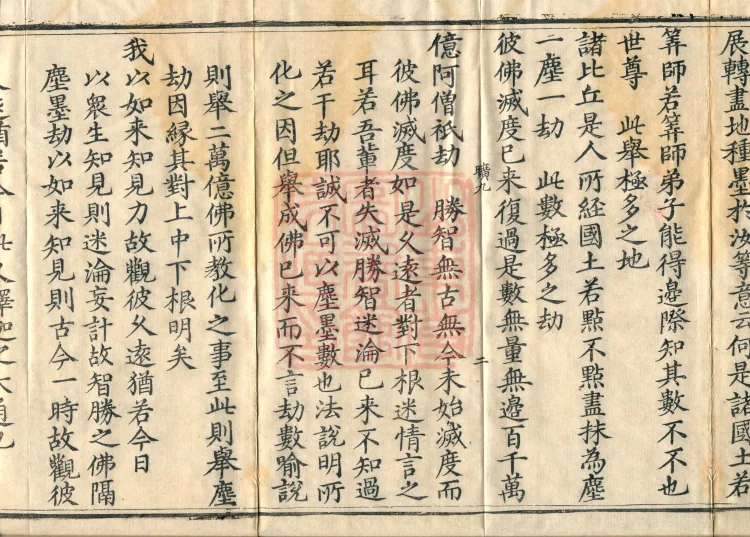 展轉盡地種墨於汝等意云何是諸國土若
筭師若筭師弟子能得邊際知其數不不也
世尊 此舉極多之地
諸比丘是人所経國土若點不點盡抹為塵
一塵一劫 此數極多之劫
彼佛滅度已来復過是數無量無邊百千萬
曠九 二
億阿僧祇劫 勝智無古無今未始滅度而
彼佛滅度如是久遠者對下根迷情言之
耳若吾軰者失滅勝智迷淪已来不知過
若干劫耶誠不可以塵墨數也法說明所
化之因但舉成佛已来而不言劫數喻說
則舉二萬億佛所教化之事至此則舉塵
劫因縁其對上中下根明矣
我以如来知見力故觀彼久遠猶若今日
以衆生知見則迷淪妄計故智勝之佛隔
塵墨劫以如来知見則古今一時故觀彼
久遠猶若今日此久釋迦之大通也